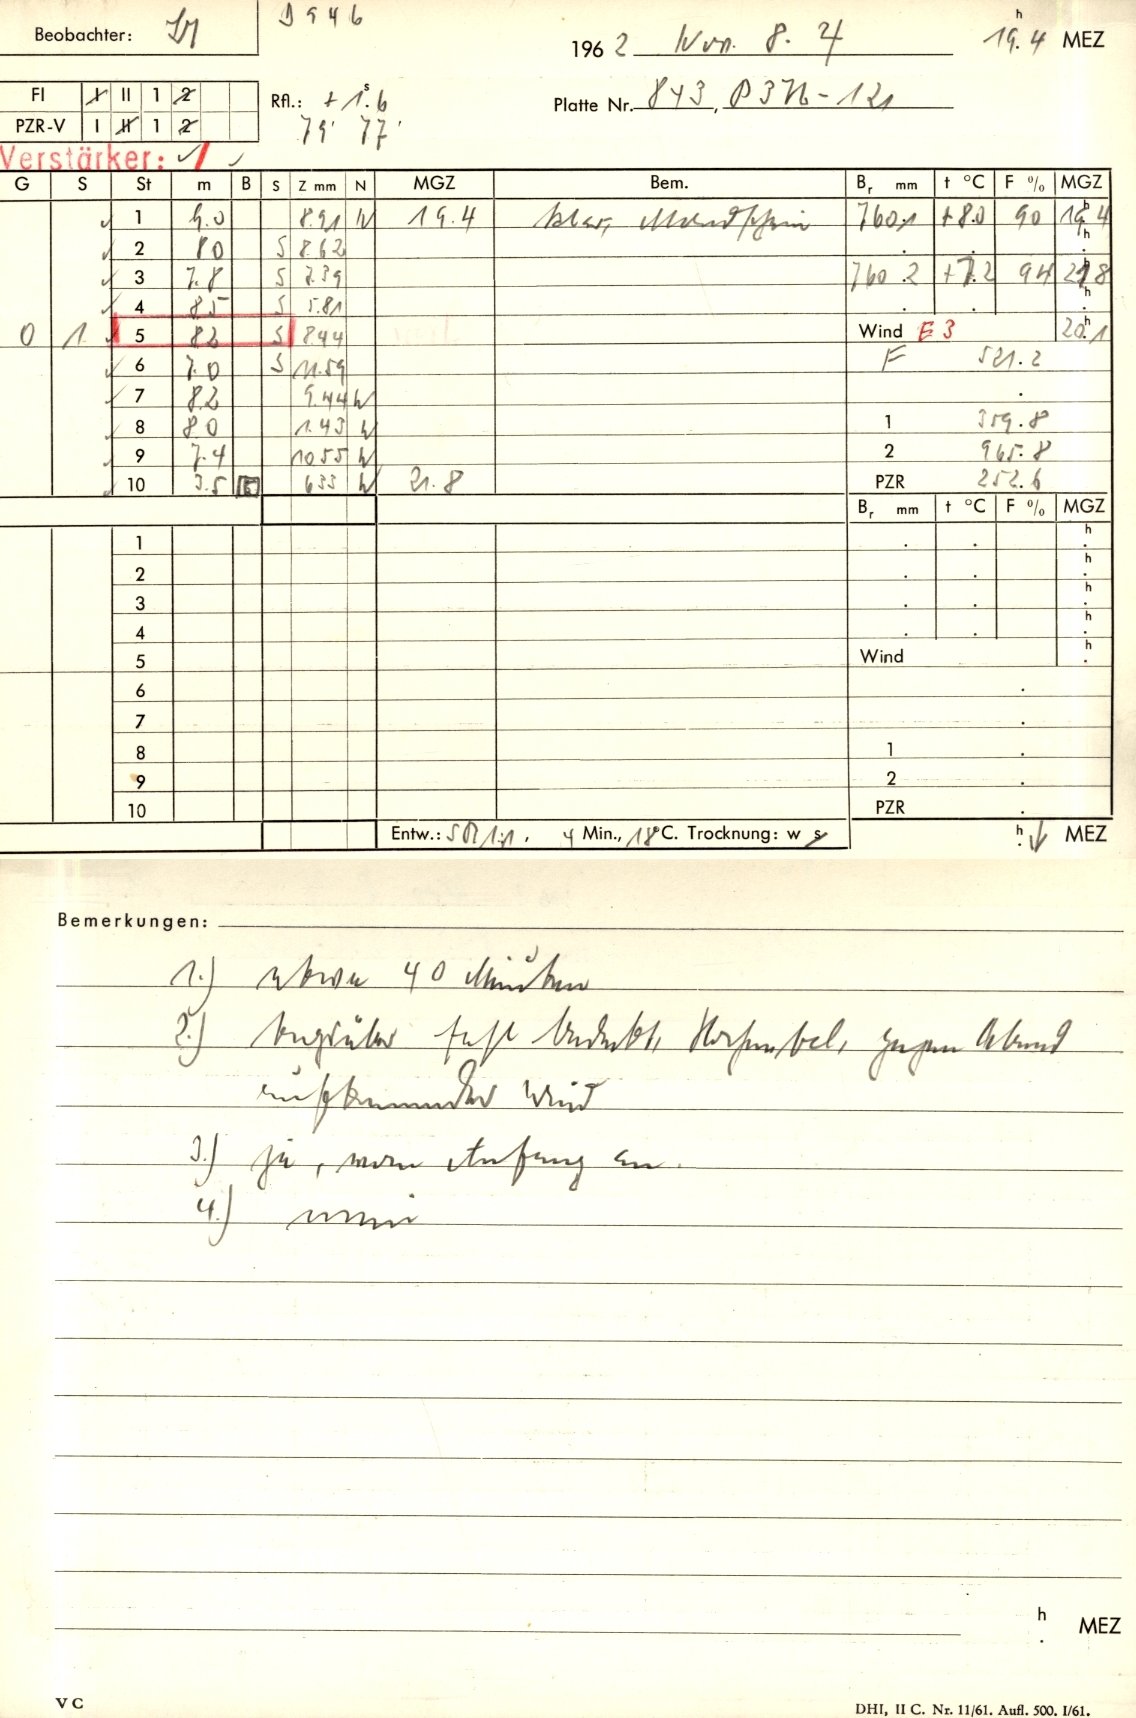 D946
Beobachter:
1962 Nov. 8. 4 19.4 h MEZ
FI I II 1 2
Rfl.: +1.6 s
Platte Nr. 843,
PZR-V I II 1 2
79' 77'
Verstärker:
G S St m B S Z mm N MGZ Bem. Br mm t °C F % MGZ
1 9.0 8.91 W 19.4 klar, Mondschein 760.1 +8.0 90 19.4 h
2 8.0 S 8.62 . . h
3 7.8 S 7.39 760.2 +7.2 94 21.8
4 8.5 S 5.81 . . h
0 1 5 8.2 S 8.44 Wind E 3 20.1 h
6 7.0 S 11.59 F 521.2
7 8.2 9.44 W .
8 8.0 1.43 W 1 359.8
9 7.4 10.55 W 2 965.8
10 3.5 6.33 W 21.8 PZR 252.6
Br mm t °C F % MGZ
1 . . h
2 . . h
3 . . h
4 . . h
5 Wind h
6 .
7 .
8 1 .
9 2 .
10 PZR .
Entw.: 4 Min., 18°C. Trocknung: w s h MEZ
Bemerkungen:
1.) etwa 40 Minuten
2.) tagsüber fast bedeckt, Hochnebel, gegen Abend
aufkommender Wind
3.) ja, von Anfang an.
4.) nein
h
. MEZ
V C
DHI, II C. Nr. 11/61. Aufl. 500. I/61.